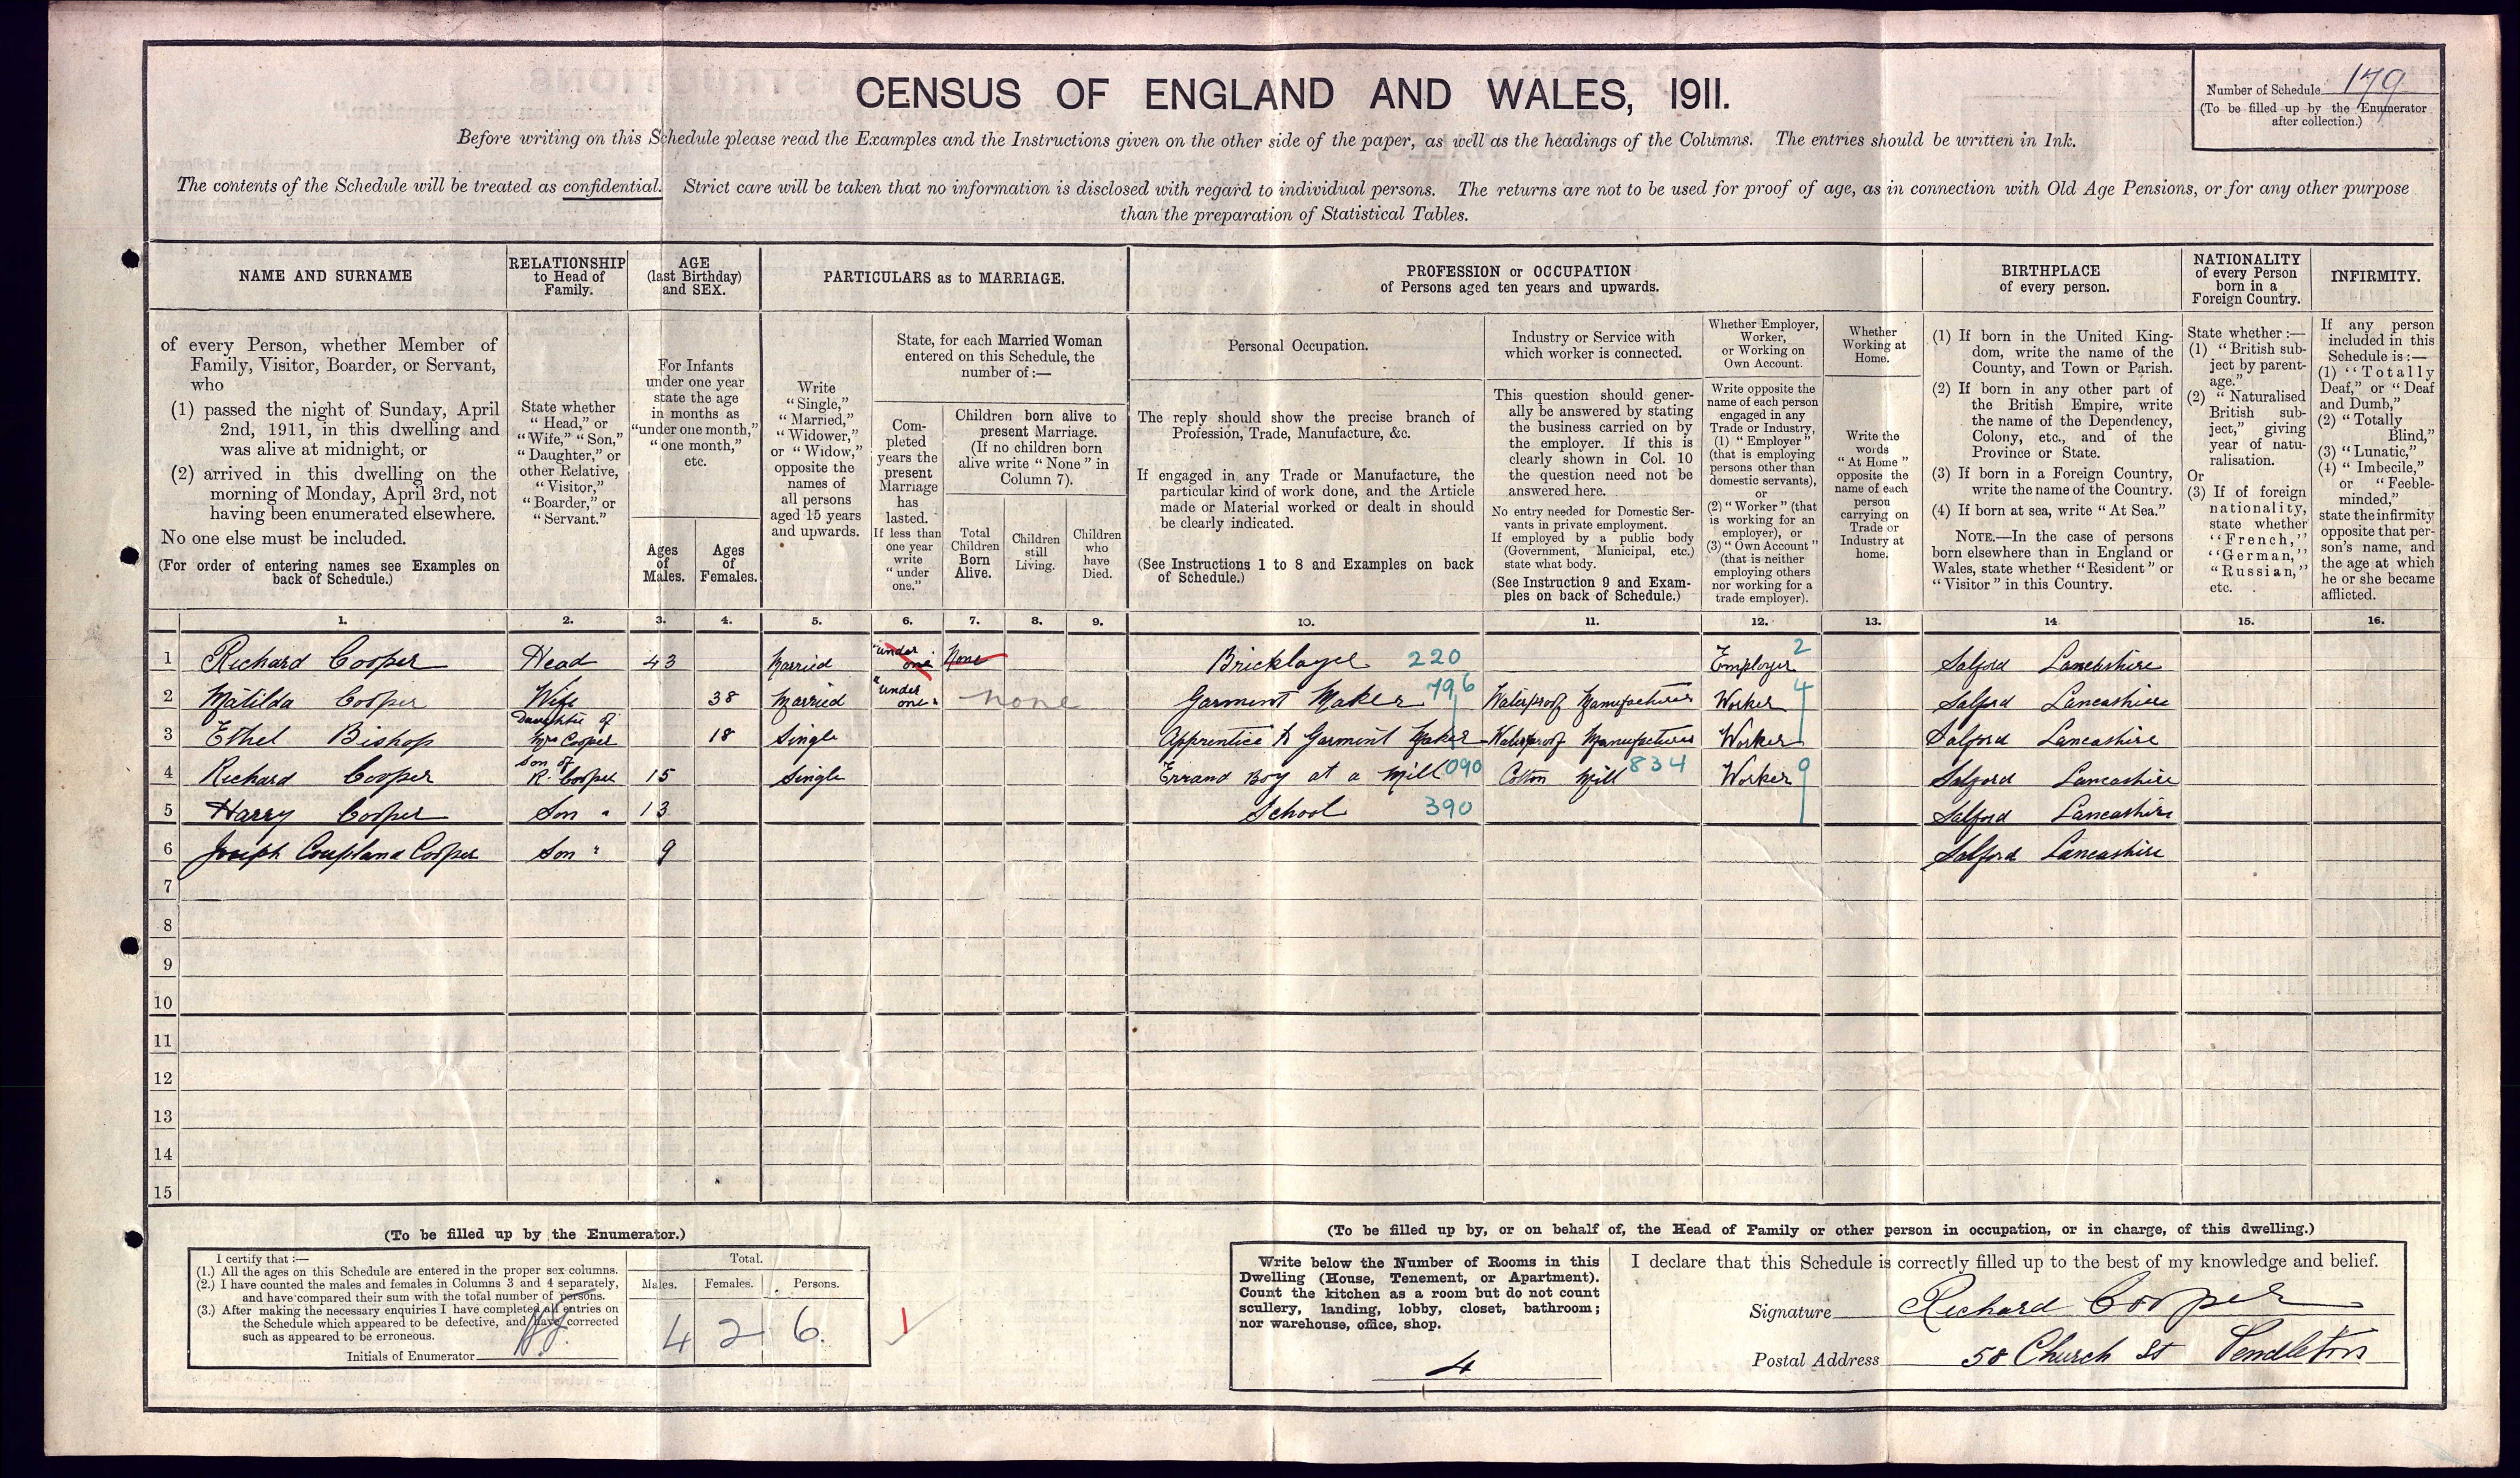 CENSUS OF ENGLAND AND WALES, 1911.
Number of Schedule 179
(To be filled up by the Enumerator
after collection.)
Before writing on this Schedule please read the Examples and the Instructions given on the other side of the paper, as well as the headings of the Columns. The entries should be written in Ink.
The contents of the Schedule will be treated as confidential. Strict care will be taken that no information is disclosed with regard to individual persons. The returns are not to be used for proof of age, as in connection with Old Age Pensions, or for any other purpose
than the preparation of Statistical Tables.
NAME AND SURNAME
of every Person, whether Member of
Family, Visitor, Boarder, or Servant,
who
(1) passed the night of Sunday, April
2nd, 1911, in this dwelling and
was alive at midnight, or
(2) arrived in this dwelling on the
morning of Monday, April 3rd, not
having been enumerated elsewhere.
No one else must be included.
(For order of entering names see Examples on
back of Schedule.)
RELATIONSHIP
to Head of
Family.
State whether
"Head," or
"Wife," "Son,"
"Daughter," or
other Relative,
"Visitor,"
"Boarder," or
"Servant."
AGE
(last Birthday)
and SEX.
For Infants
under one year
state the age
in months as
"under one month,"
"one month,"
etc.
Ages
of
Males.
Ages
of
Females.
PARTICULARS as to MARRIAGE.
Write
"Single,"
"Married,"
"Widower,"
or "Widow,"
opposite the
names of
all persons
aged 15 years
and upwards.
State, for each Married Woman
entered on this Schedule, the
number of:—
Com-
pleted
years the
present
Marriage
has
lasted.
If less than
one year
write
"under
one."
Children born alive to
present Marriage.
(If no children born
alive write "None" in
Column 7).
Total
Children
Born
Alive.
Children
still
Living.
Children
who
have
Died.
PROFESSION or OCCUPATION
of Persons aged ten years and upwards.
Personal Occupation.
The reply should show the precise branch of
Profession, Trade, Manufacture, &c.
If engaged in any Trade or Manufacture, the
particular kind of work done, and the Article
made or Material worked or dealt in should
be clearly indicated.
(See Instructions 1 to 8 and Examples on back
of Schedule.)
Industry or Service with
which worker is connected.
This question should gener-
ally be answered by stating
the business carried on by
the employer. If this is
clearly shown in Col. 10
the question need not be
answered here.
No entry needed for Domestic Ser-
vants in private employment.
If employed by a public body
(Government, Municipal, etc.)
state what body.
(See Instruction 9 and Exam-
ples on back of Schedule.)
Whether Employer,
Worker,
or Working on
Own Account.
Write opposite the
name of each person
engaged in any
Trade or Industry,
(1) "Employer"
(that is employing
persons other than
domestic servants),
or
(2) "Worker" (that
is working for an
employer), or
(3) "Own Account"
(that is neither
employing others
nor working for a
trade employer).
Whether
Working at
Home.
Write the
words
"At Home"
opposite the
name of each
person
carrying on
Trade or
Industry at
home.
BIRTHPLACE
of every person.
(1) If born in the United King-
dom, write the name of the
County, and Town or Parish.
(2) If born in any other part of
the British Empire, write
the name of the Dependency,
Colony, etc., and of the
Province or State.
(3) If born in a Foreign Country,
write the name of the Country.
(4) If born at sea, write "At Sea."
NOTE.—In the case of persons
born elsewhere than in England or
Wales, state whether "Resident" or
"Visitor" in this Country.
NATIONALITY
of every Person
born in a
Foreign Country.
State whether:—
(1) "British sub-
ject by parent-
age."
(2) "Naturalised
British sub-
ject," giving
year of natu-
ralisation.
Or
(3) If of foreign
nationality,
state whether
"French,"
"German,"
"Russian,"
etc.
INFIRMITY.
If any person
included in this
Schedule is:—
(1) "Totally
Deaf," or "Deaf
and Dumb,"
(2) "Totally
Blind,"
(3) "Lunatic,"
(4) "Imbecile,"
or "Feeble-
minded,"
state the infirmity
opposite that per-
son's name, and
the age at which
he or she became
afflicted.
1. 2. 3. 4. 5. 6. 7. 8. 9. 10. 11. 12. 13. 14 15. 16.
1 Richard Cooper Head 43 Married "under one" None Bricklayer 220 Employer 2 Salford Lancashire
2 Matilda Cooper Wife 38 Married "under one" none Garment Maker 796 Waterproof Manufacturers Worker 4 Salford Lancashire
3 Ethel Bishop Daughter of Mrs Cooper 18 Single Apprentice to Garment Maker Waterproof Manufacturers Worker Salford Lancashire
4 Richard Cooper Son of R. Cooper 15 Single Errand Boy at a Mill 090 Cotton Mill 834 Worker 9 Salford Lancashire
5 Harry Cooper Son " 13 School 390 Salford Lancashire
6 Joseph Coupland Cooper Son " 9 Salford Lancashire
7
8
9
10
11
12
13
14
15
(To be filled up by the Enumerator.)
I certify that:—
(1.) All the ages on this Schedule are entered in the proper sex columns.
(2.) I have counted the males and females in Columns 3 and 4 separately,
and have compared their sum with the total number of persons.
(3.) After making the necessary enquiries I have completed all entries on
the Schedule which appeared to be defective, and have corrected
such as appeared to be erroneous.
Initials of Enumerator
Total.
Males. Females. Persons.
4 2 6.
1
(To be filled up by, or on behalf of, the Head of Family or other person in occupation, or in charge, of this dwelling.)
Write below the Number of Rooms in this
Dwelling (House, Tenement, or Apartment).
Count the kitchen as a room but do not count
scullery, landing, lobby, closet, bathroom;
nor warehouse, office, shop.
4
I declare that this Schedule is correctly filled up to the best of my knowledge and belief.
Signature Richard Cooper
Postal Address 58 Church St Pendleton